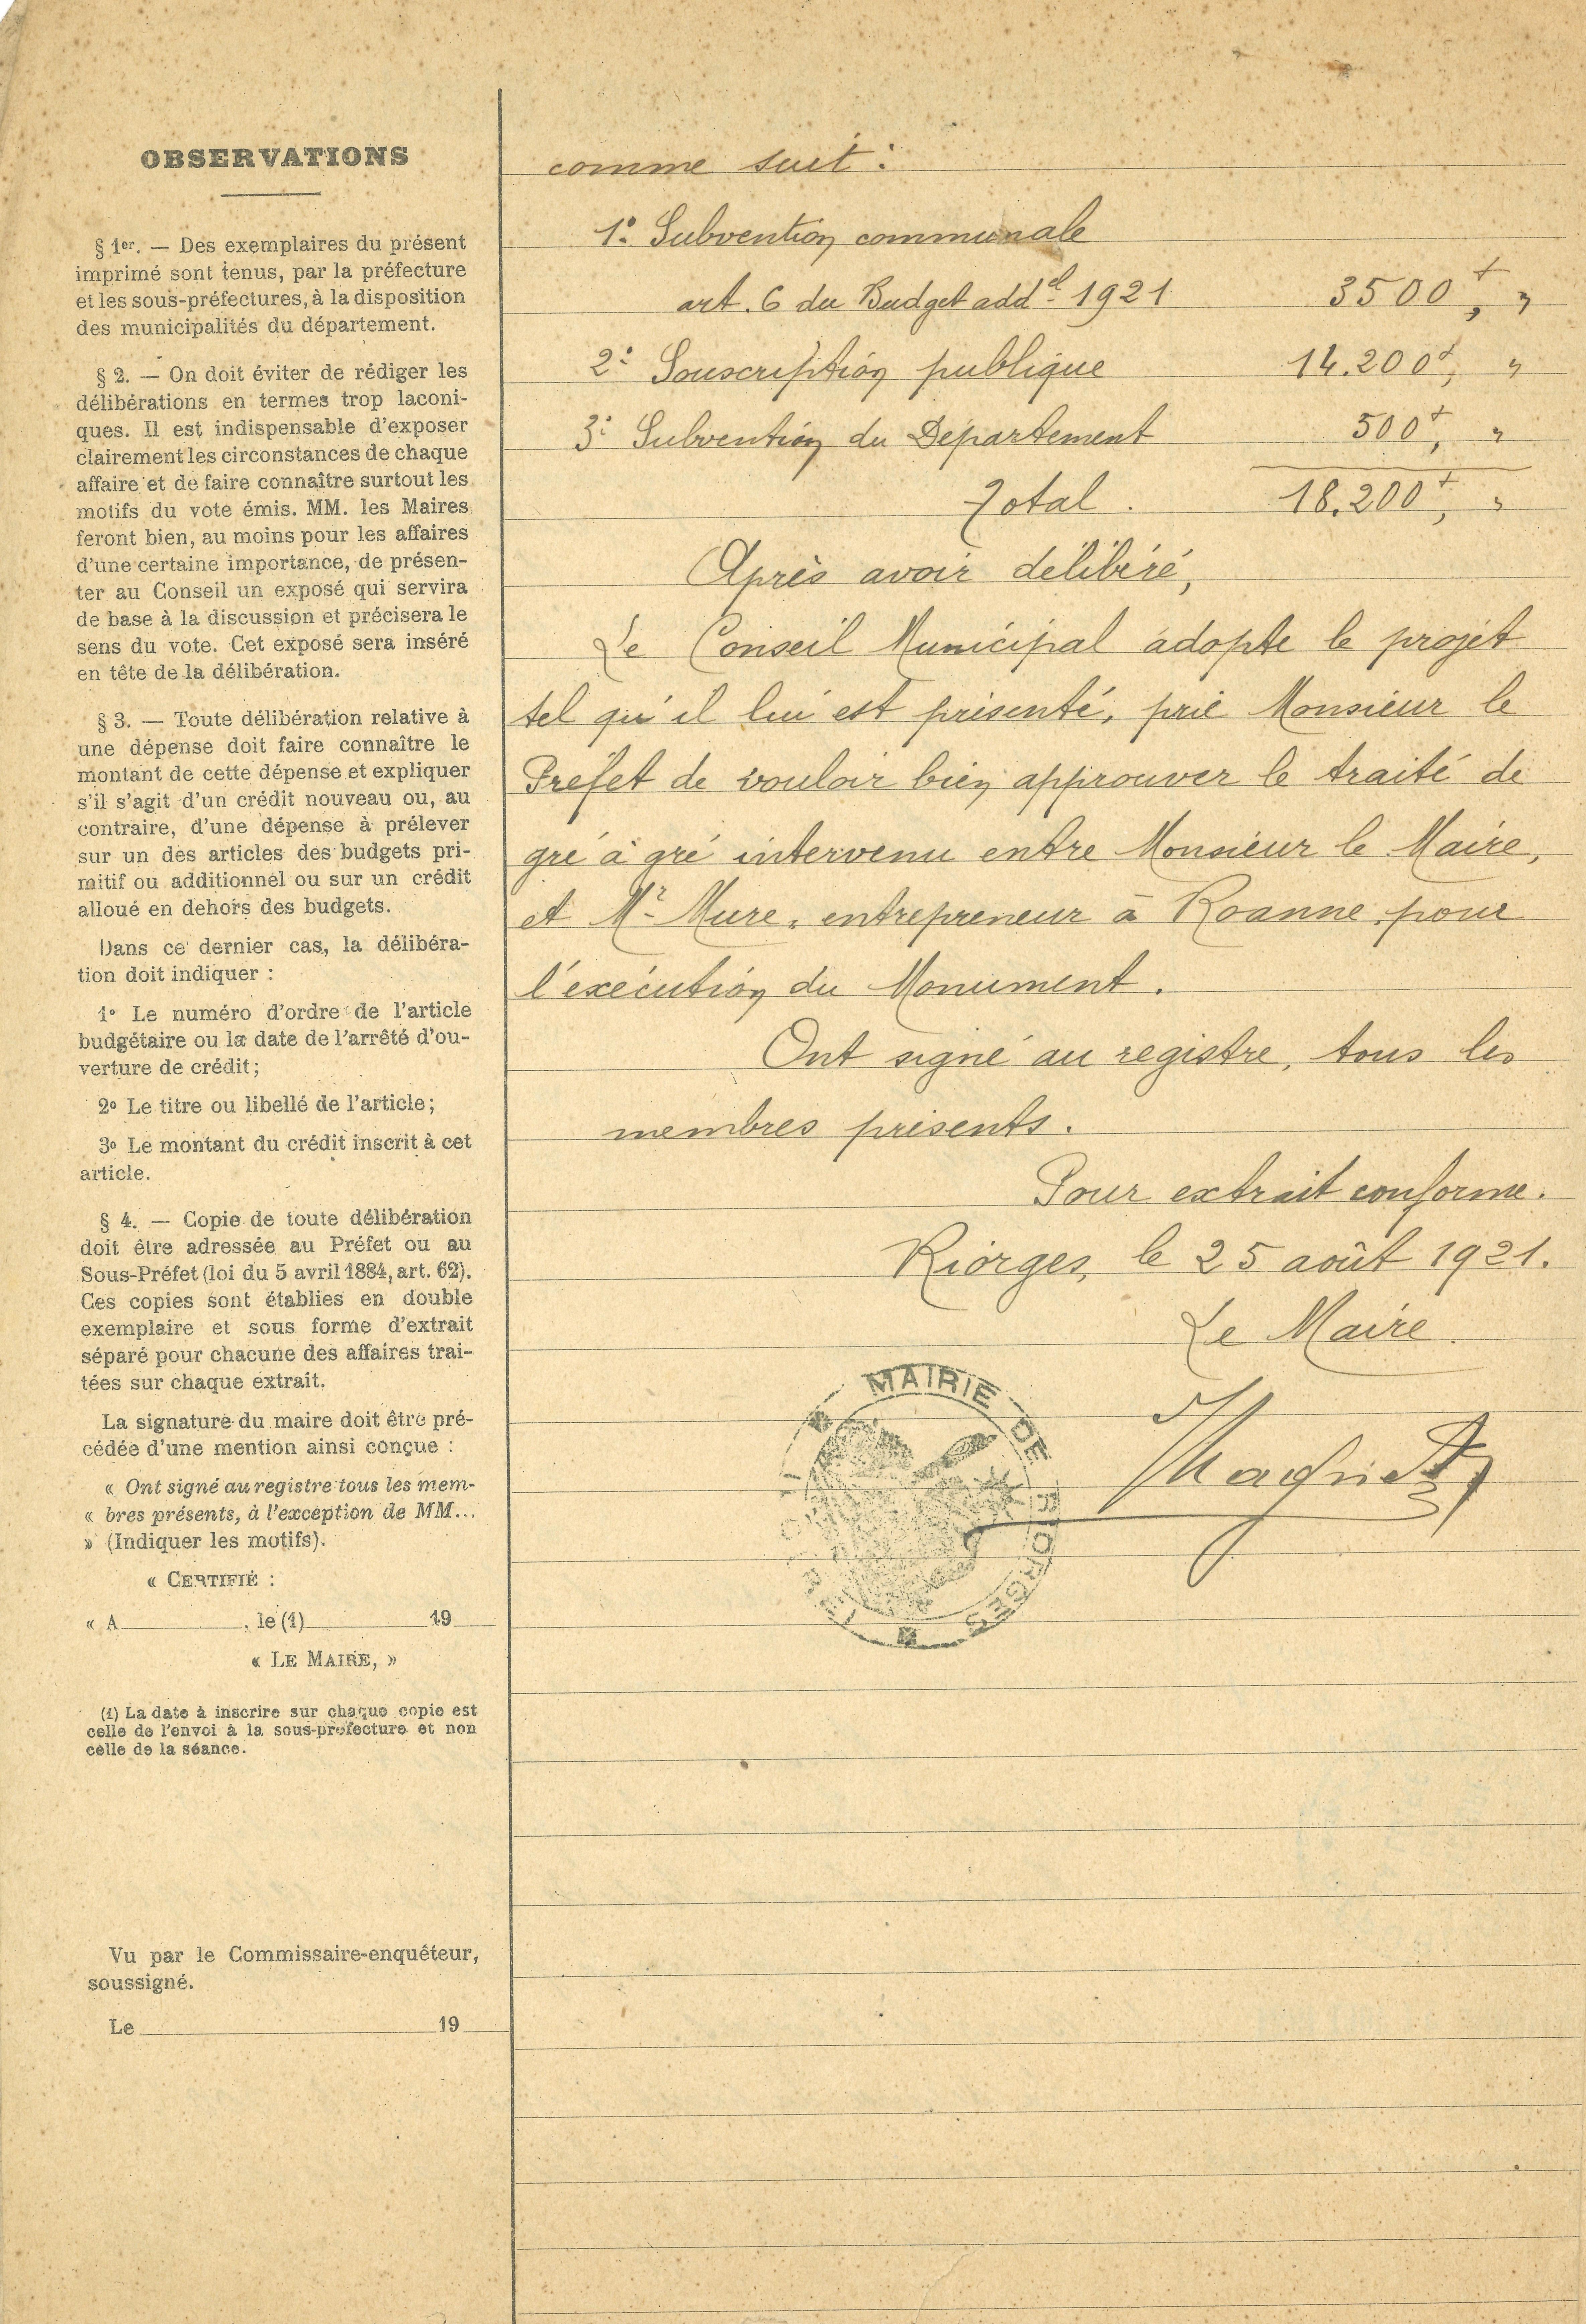 OBSERVATIONS
§ 1er. — Des exemplaires du présent
imprimé sont tenus, par la préfecture
et les sous-préfectures, à la disposition
des municipalités du département.
§ 2. — On doit éviter de rédiger les
délibérations en termes trop laconi-
ques. Il est indispensable d'exposer
clairement les circonstances de chaque
affaire et de faire connaître surtout les
motifs du vote émis. MM. les Maires
feront bien, au moins pour les affaires
d'une certaine importance, de présen-
ter au Conseil un exposé qui servira
de base à la discussion et précisera le
sens du vote. Cet exposé sera inséré
en tête de la délibération.
§ 3. — Toute délibération relative à
une dépense doit faire connaître le
montant de cette dépense et expliquer
s'il s'agit d'un crédit nouveau ou, au
contraire, d'une dépense à prélever
sur un des articles des budgets pri-
mitif ou additionnel ou sur un crédit
alloué en dehors des budgets.
Dans ce dernier cas, la délibéra-
tion doit indiquer :
1° Le numéro d'ordre de l'article
budgétaire ou la date de l'arrêté d'ou-
verture de crédit;
2° Le titre ou libellé de l'article;
3° Le montant du crédit inscrit à cet
article.
§ 4. — Copie de toute délibération
doit être adressée au Préfet ou au
Sous-Préfet (loi du 5 avril 1884, art. 62).
Ces copies sont établies en double
exemplaire et sous forme d'extrait
séparé pour chacune des affaires trai-
tées sur chaque extrait.
La signature du maire doit être pré-
cédée d'une mention ainsi conçue :
« Ont signé au registre tous les mem-
« bres présents, à l'exception de MM...
» (Indiquer les motifs).
« CERTIFIÉ :
« A , le (1) 19
« LE MAIRE, »
(1) La date à inscrire sur chaque copie est
celle de l'envoi à la sous-préfecture et non
celle de la séance.
Vu par le Commissaire-enquêteur,
soussigné.
Le 19
comme suit :
1° Subvention communale
art. 6 du Budget addel 1921 3500f, "
2° Souscription publique 14.200f, "
3° Subvention du Département 500f, "
Total . 18.200f, "
Après avoir délibéré,
Le Conseil Municipal adopte le projet
tel qu'il lui est présenté, prie Monsieur le
Préfet de vouloir bien approuver le traité de
gré à gré intervenu entre Monsieur le Maire,
et Mr Mure, entrepreneur à Roanne, pour
l'exécution du Monument.
Ont signé au registre, tous les
membres présents.
Pour extrait conforme.
Riorges, le 25 août 1921.
Le Maire.
MAIRIE DE RIORGES